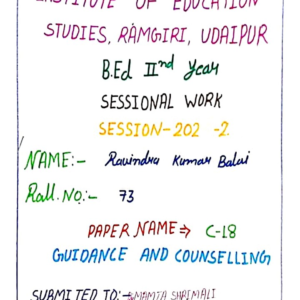 INSTITUTE OF EDUCATION
STUDIES, RAMGIRI, UDAIPUR
B.Ed IInd Year
SESSIONAL WORK
SESSION-202 -2
NAME:- Ravindra Kumar Balai
Roll. NO:- 73
PAPER NAME⇒ C-18
GUIDANCE AND COUNSELLING
SUBMITED TO:→ MAMTA SHRIMALI